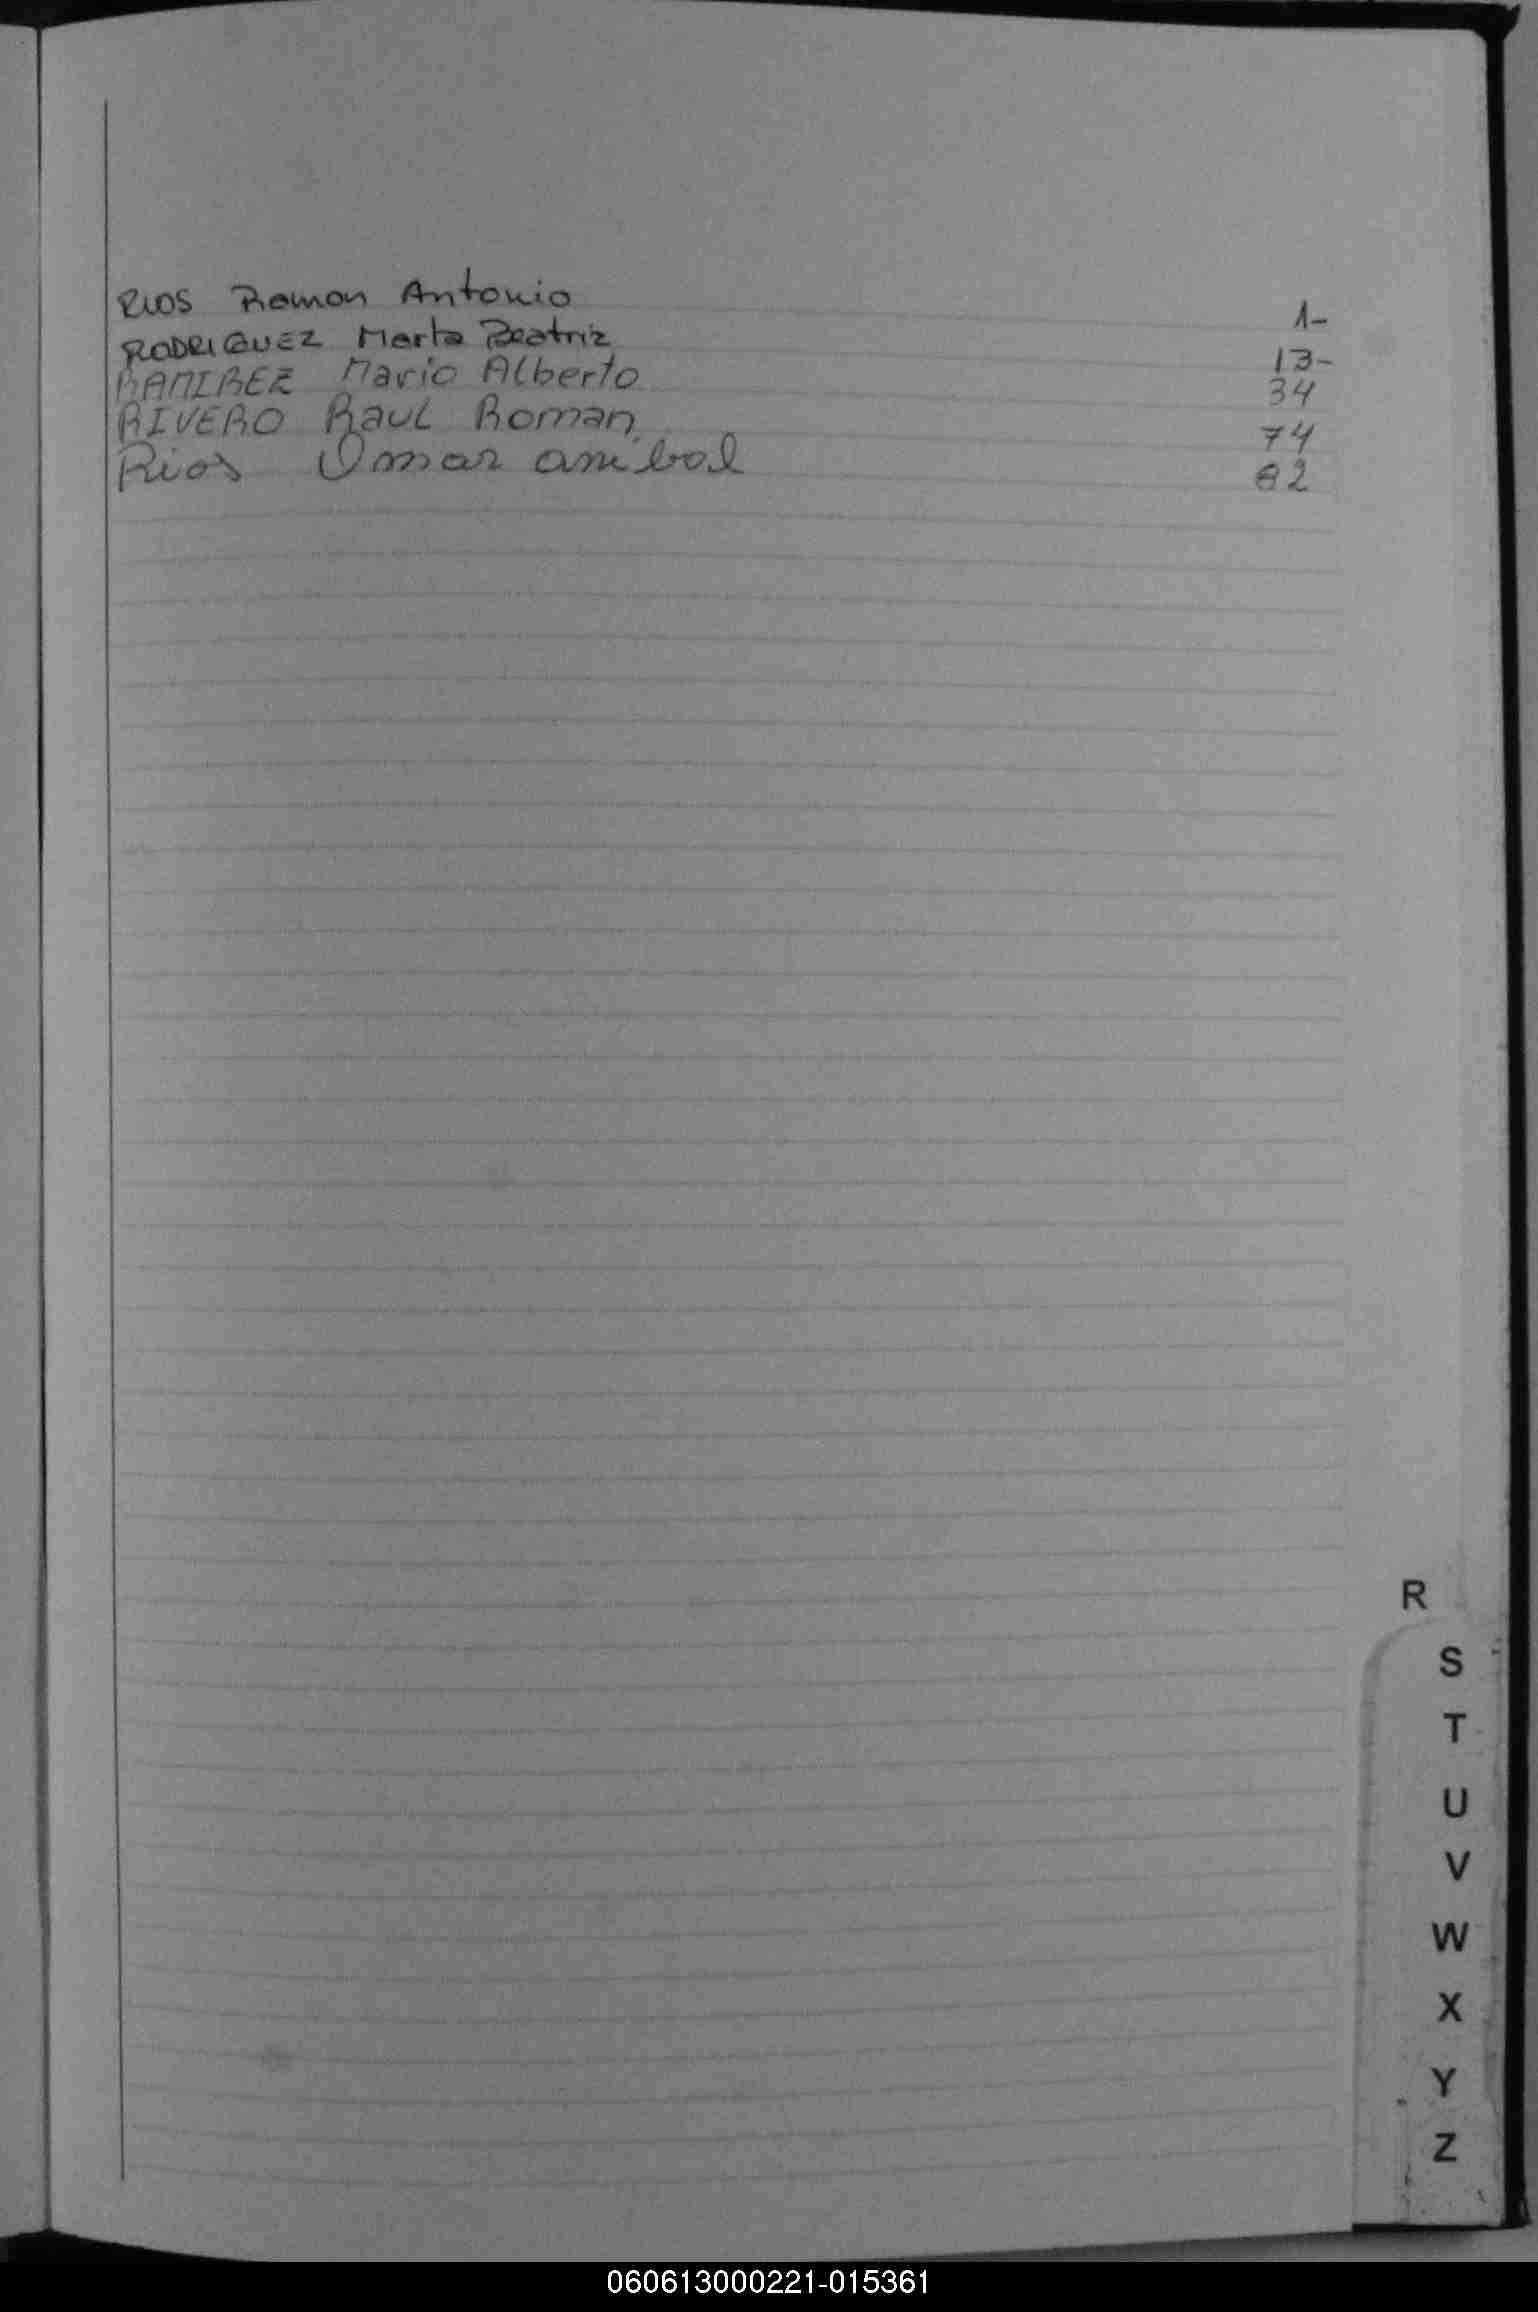 RIOS Ramon Antonio 1-
RODRIGUEZ Marta Beatriz 13-
RAMIREZ Mario Alberto 34
RIVERO Raul Roman 74
Rios Omar anibal 82
R
S
T
U
V
W
X
Y
Z
060613000221-015361